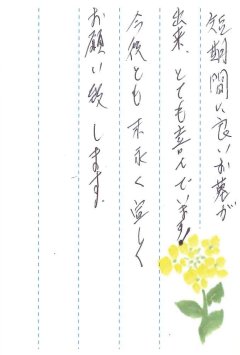 短期間に良いお墓が
出来、とても喜んでいます。
今後とも末永く宜しく
お願い致します。